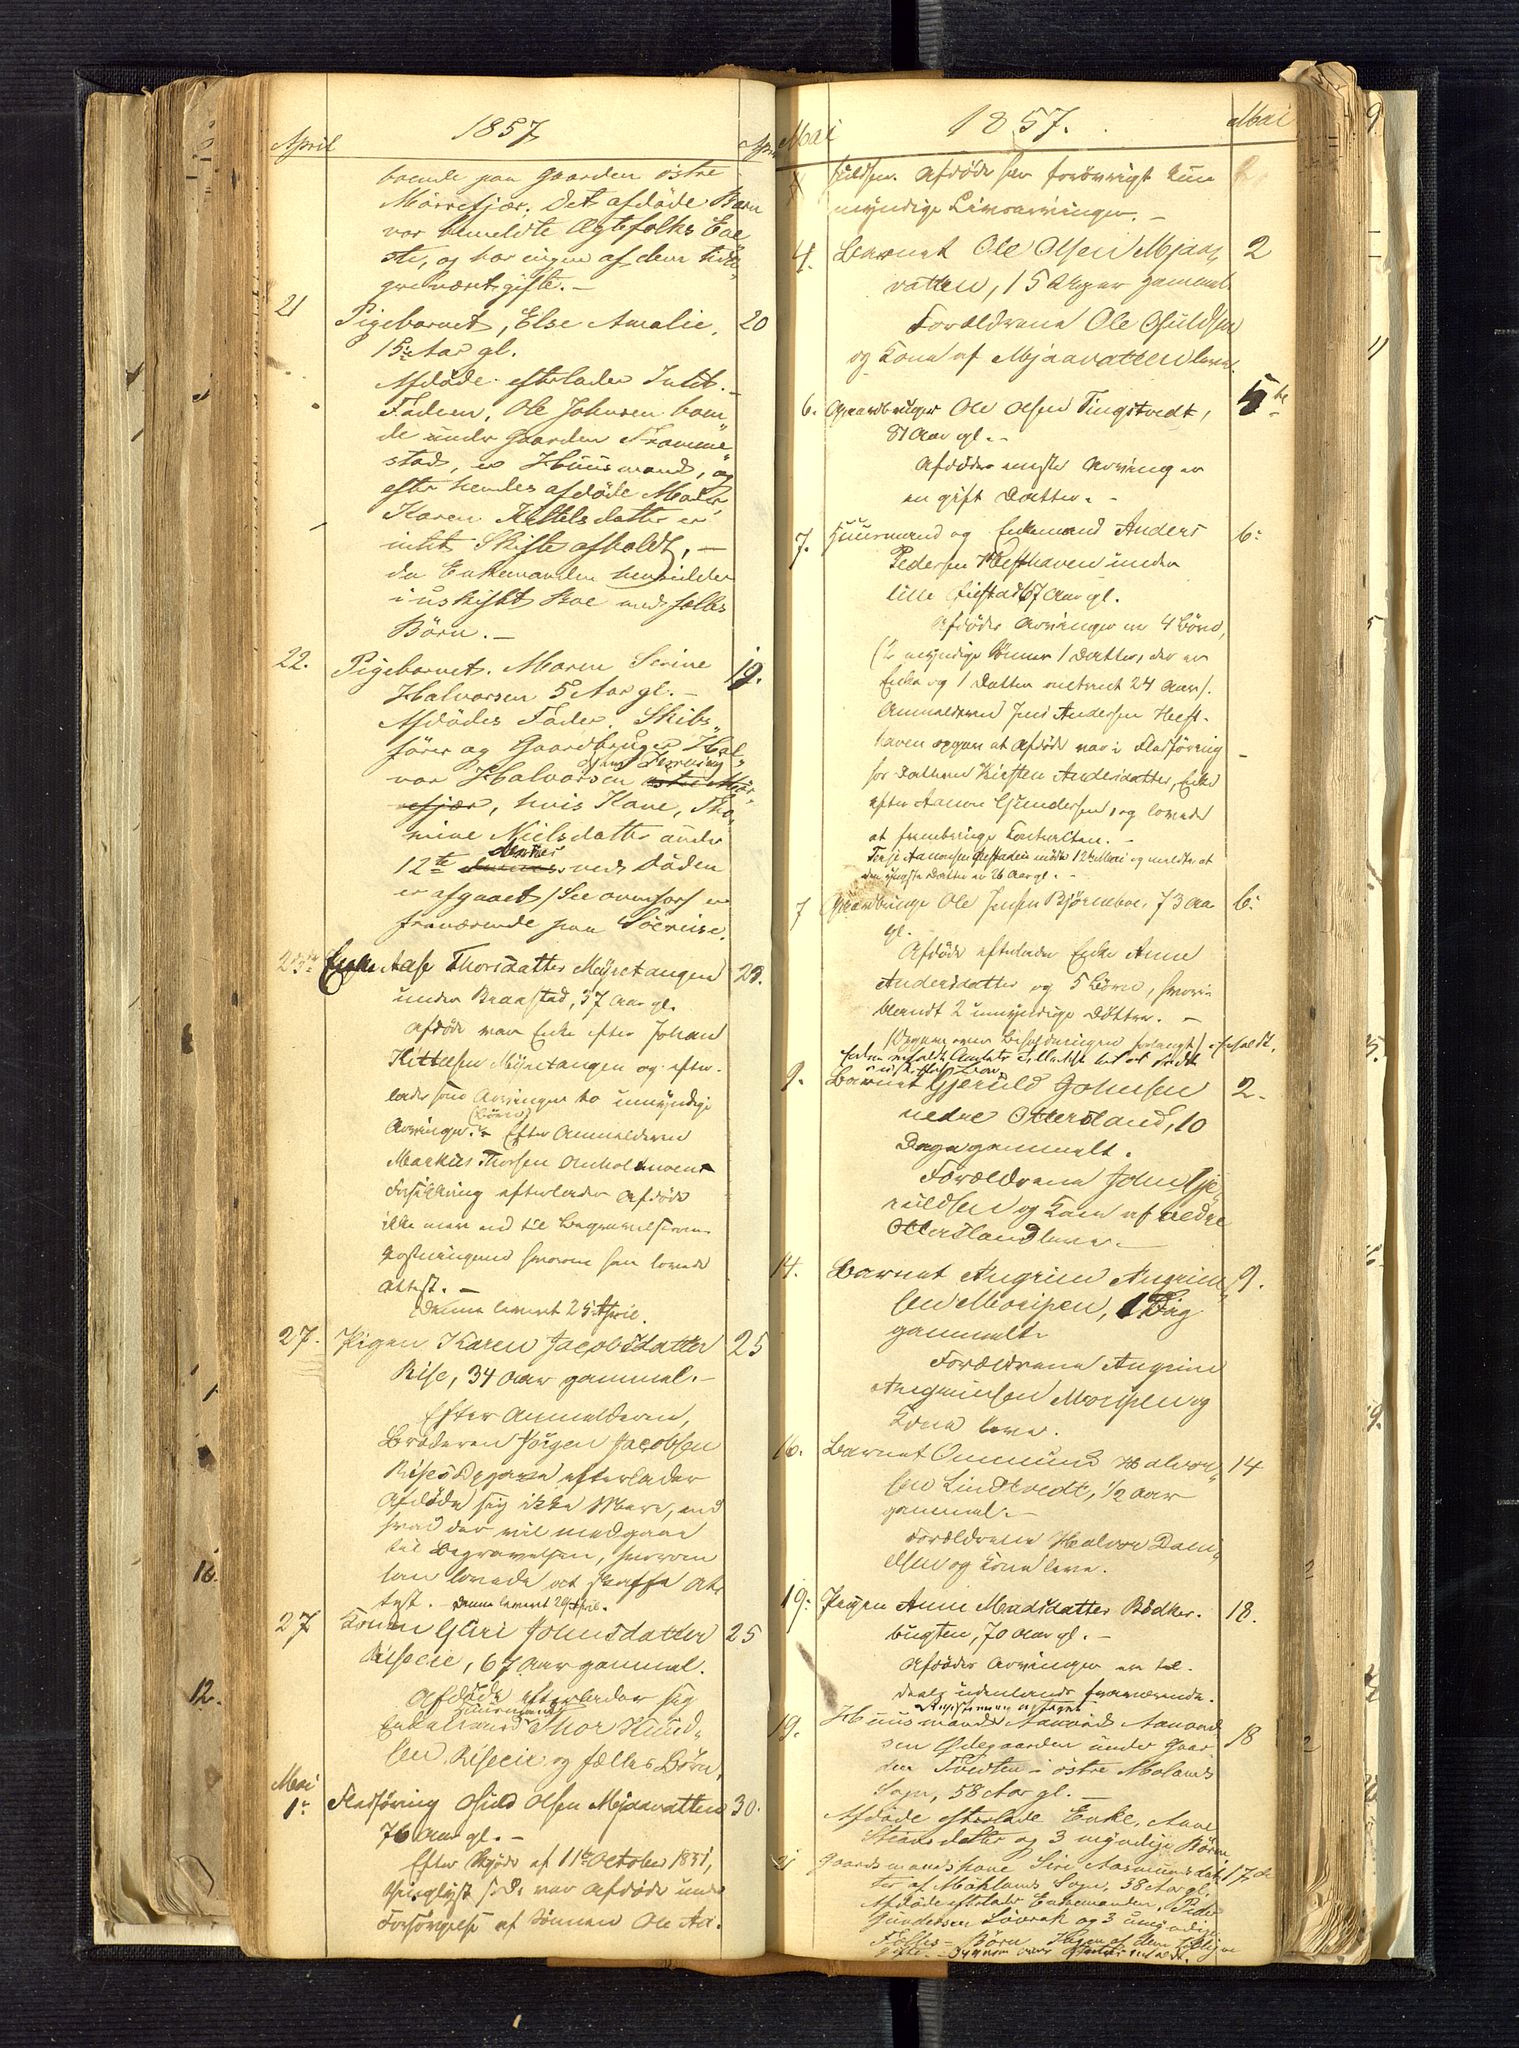 1857
April
April
boende paa Gaarden østre
Mørrefjær. Det afdøde Barn
var bemeldte Ægtefolks Ene
ste, og har ingen af dem tid
gere været gifte. —
21 Pigebarnet, Else Amalie, 20
15 Aar gl.
Afdøde efterlader Intet. —
Faderen, Ole Johnsen boen
de under Gaarden Fromme
stad, er Huusmand, og
efter hendes afdøde Moder,
Karen Kittelsdatter er
intet Skifte afholdt, —
da Enkemanden hensidder
i uskiftet Boe med fælles
Børn. —
22. Pigebarnet. Maren Serine 19.
Halvorsen 5 Aar gl. —
Afdødes Fader. Skibs
fører og Gaardbruger Hal
var Halvorsen østre Mør
refjær, hvis Kone, Tho
mine Nielsdatter under
12te dennes ved Døden
er afgaaet / See ovenfor / er
fraværende paa Søereise.
23de Enke Aase Thorsdatter Myretangen 23.
under Braastad, 37 Aar gl.
Afdøde var Enke efter Johan
Kittelsen Myretangen og efter-
lader som Arvinger to umyndige
(Børn)
Arvinger. — Efter Anmelderen
Markus Thorsen
Forsikring efterlader Afdøde
ikke mere end til Begravelsens
Bestridelse hvorom han lovede
Attest. —
Denne levert 25 April.
27. Pigen Karen Jacobsdatter 25
Rise, 34 Aar gammel. —
Efter Anmelderen,
Broderen Jørgen Jacobsen
Rises Opgave efterlader
Afdøde sig ikke Mere, end
hvad der vil medgaae
til Begravelsen, hvorom
han lovede at skaffe At
test. — Denne levert 29 April.
27 Konen Guri Johnsdatter 25
Riseeie, 67 Aar gammel.
Afdøde efterlader sig
Huusmand
Enkemand Thor Knud-
sen Riseeie og fælles Børn.
Mai
1. Fladføring Osuld Olsen Mjaavatten 30.
76 Aar gl. —
Efter Skjøde af 11te October 1851,
thinglyst s. D. var Afdøde under
Forsørgelse af Sønnen Ole

Mai
1857.
Mai
Osuldsen. Afdøde har forøvrigt kun
myndige Livsarvinger. —
4. Barnet Ole Olsen Mjaa 2
vatten, 15 Uger gammel
Forældrene Ole Osuldsen
og Kone af Mjaavatten leve.
6. Gaardbruger Ole Olsen Tingstvedt, 5te
81 Aar gl. —
Afdødes eneste Arving er
en gift Datter. —
7. Huusmand og Enkemand Anders 6.
Pedersen Hesthaven under
lille Fiestad 67 Aar gl.
Afdødes Arvinger er 4 Børn,
(2 myndige Sønner 1 Datter, der er
Enke og 1 Datter omtrent 24 Aar).
Anmelderen Jens Andersen Hest-
haven opgav at Afdøde var i Fladføring
hos Datteren Kirsten Andersdatter, Enke
efter Aanon Gundersen, og lovede
at frembringe Contracten. —
Terje Aanonsen mødte 12te Mai og meldte at
den yngste Datter er 26 Aar gl. —
7 Gaardbruger Ole Jensen Bjørneboe, 73 Aar 6.
gl.
Afdøde efterlader Enke Anne
Andersdatter og 5 Børn, hvori-
blandt 2 umyndige Døttre. —
(Opgave over Besætningen forlangt)
9. Barnet Gjeruld Johnsen 2.
nedre Ottersland, 10
Dage gammelt.
Forældrene John Gje
ruldsen og Kone af nedre
Ottersland leve. —
14. Barnet Angrim Angrim 9.
sen Moripen, 1 Dag
gammelt.
Forældrene Angrim
Angrimsen Moripen og
Kone leve.
16. Barnet Ommund Halvor 14
sen Lindtvedt, 1/2 Aar
gammel. —
Forældrene Halvor Dani
elsen og Kone leve.
19. Pigen Anne Madsdatter Bødker- 18.
bugten, 70 Aar gl. —
Afdødes Arvinger er til-
deels udenlands fraværende.
19. Huusmand Aanond Aanond 18
sen Ødegaarden under Gaar
den Tvedten i østre Molands
Sogn, 58 Aar gl. —
Afdøde efterlade Enke, Anne
Steansdatter og 3 myndige Børn
21 Gaardmandskone Siri Aasmundsdat 17de
ter af Møhlands Sogn, 38 Aar gl.
Afdøde efterlader Enkemanden, Peder
Gundersen Løvrak og 3 umyndige
Fælles-Børn. Ingen af dem tidligere
gifte. —